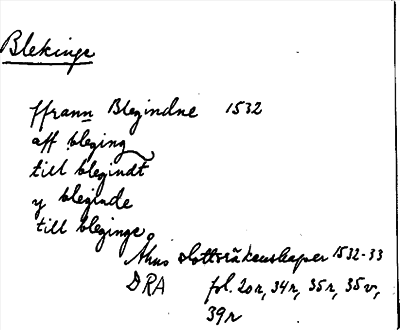 Blekinge
ffrann Blegindne 1532
aff bleging
till blegindt
y bleginde
till bleginge
Åhus slottsräkenskaper 1532-33
DRA fol. 20r, 34r, 35r, 35v,
39r